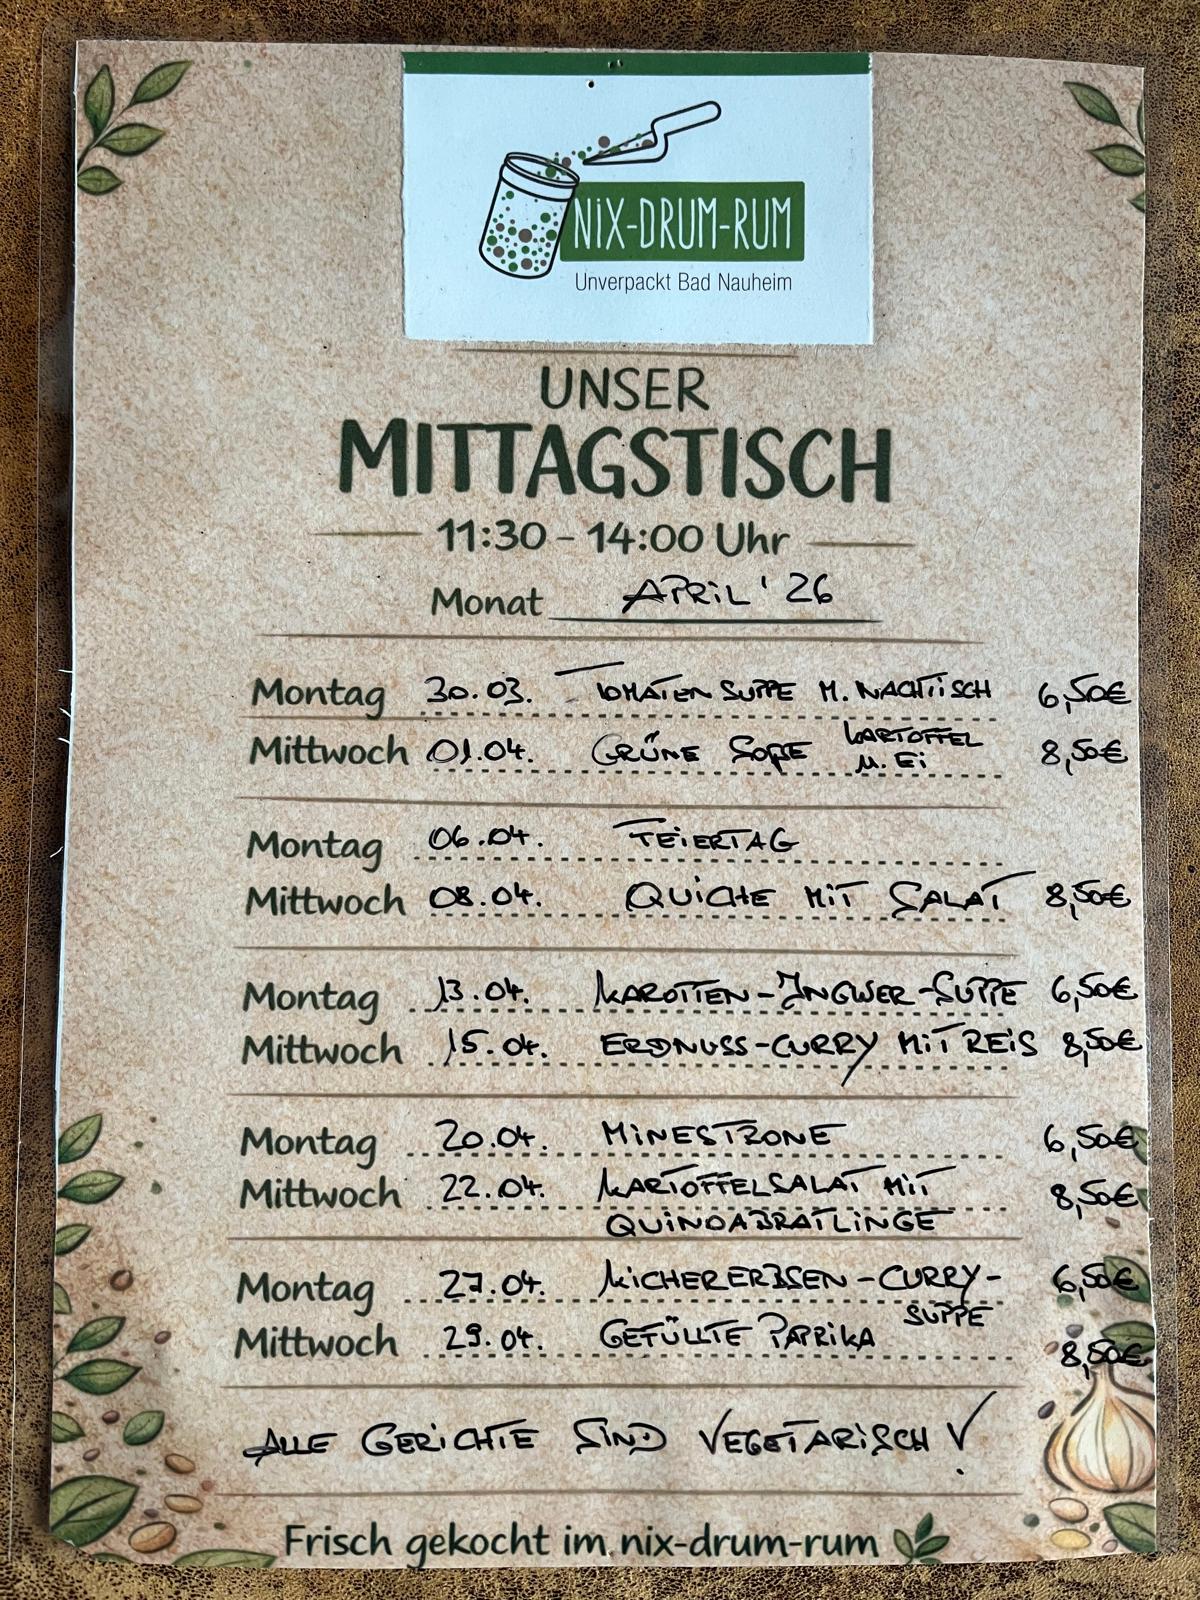 NiX-DRUM-RUM
Unverpackt Bad Nauheim
UNSER
MITTAGSTISCH
11:30 - 14:00 Uhr
Monat APRiL '26
Montag 30.03. TOMATEN SUPPE M. NACHTiSCH 6,50€
Mittwoch 01.04. GRÜNE SOßE KARTOFFEL M. Ei 8,50€
Montag 06.04. FEiERTAG
Mittwoch 08.04. QUiCHE MiT SALAT 8,50€
Montag 13.04. KAROTTEN-INGWER-SUPPE 6,50€
Mittwoch 15.04. ERDNUSS-CURRY MiT REiS 8,50€
Montag 20.04. MiNESTRONE 6,50€
Mittwoch 22.04. KARTOFFELSALAT MiT 8,50€
QUiNOABRATLiNGE
Montag 27.04. KiCHERERBSEN-CURRY- 6,50€
SUPPE
Mittwoch 29.04. GEFÜLLTE PAPRiKA 8,50€
ALLE GERiCHTE SiND VEGETARiSCH!
Frisch gekocht im nix-drum-rum